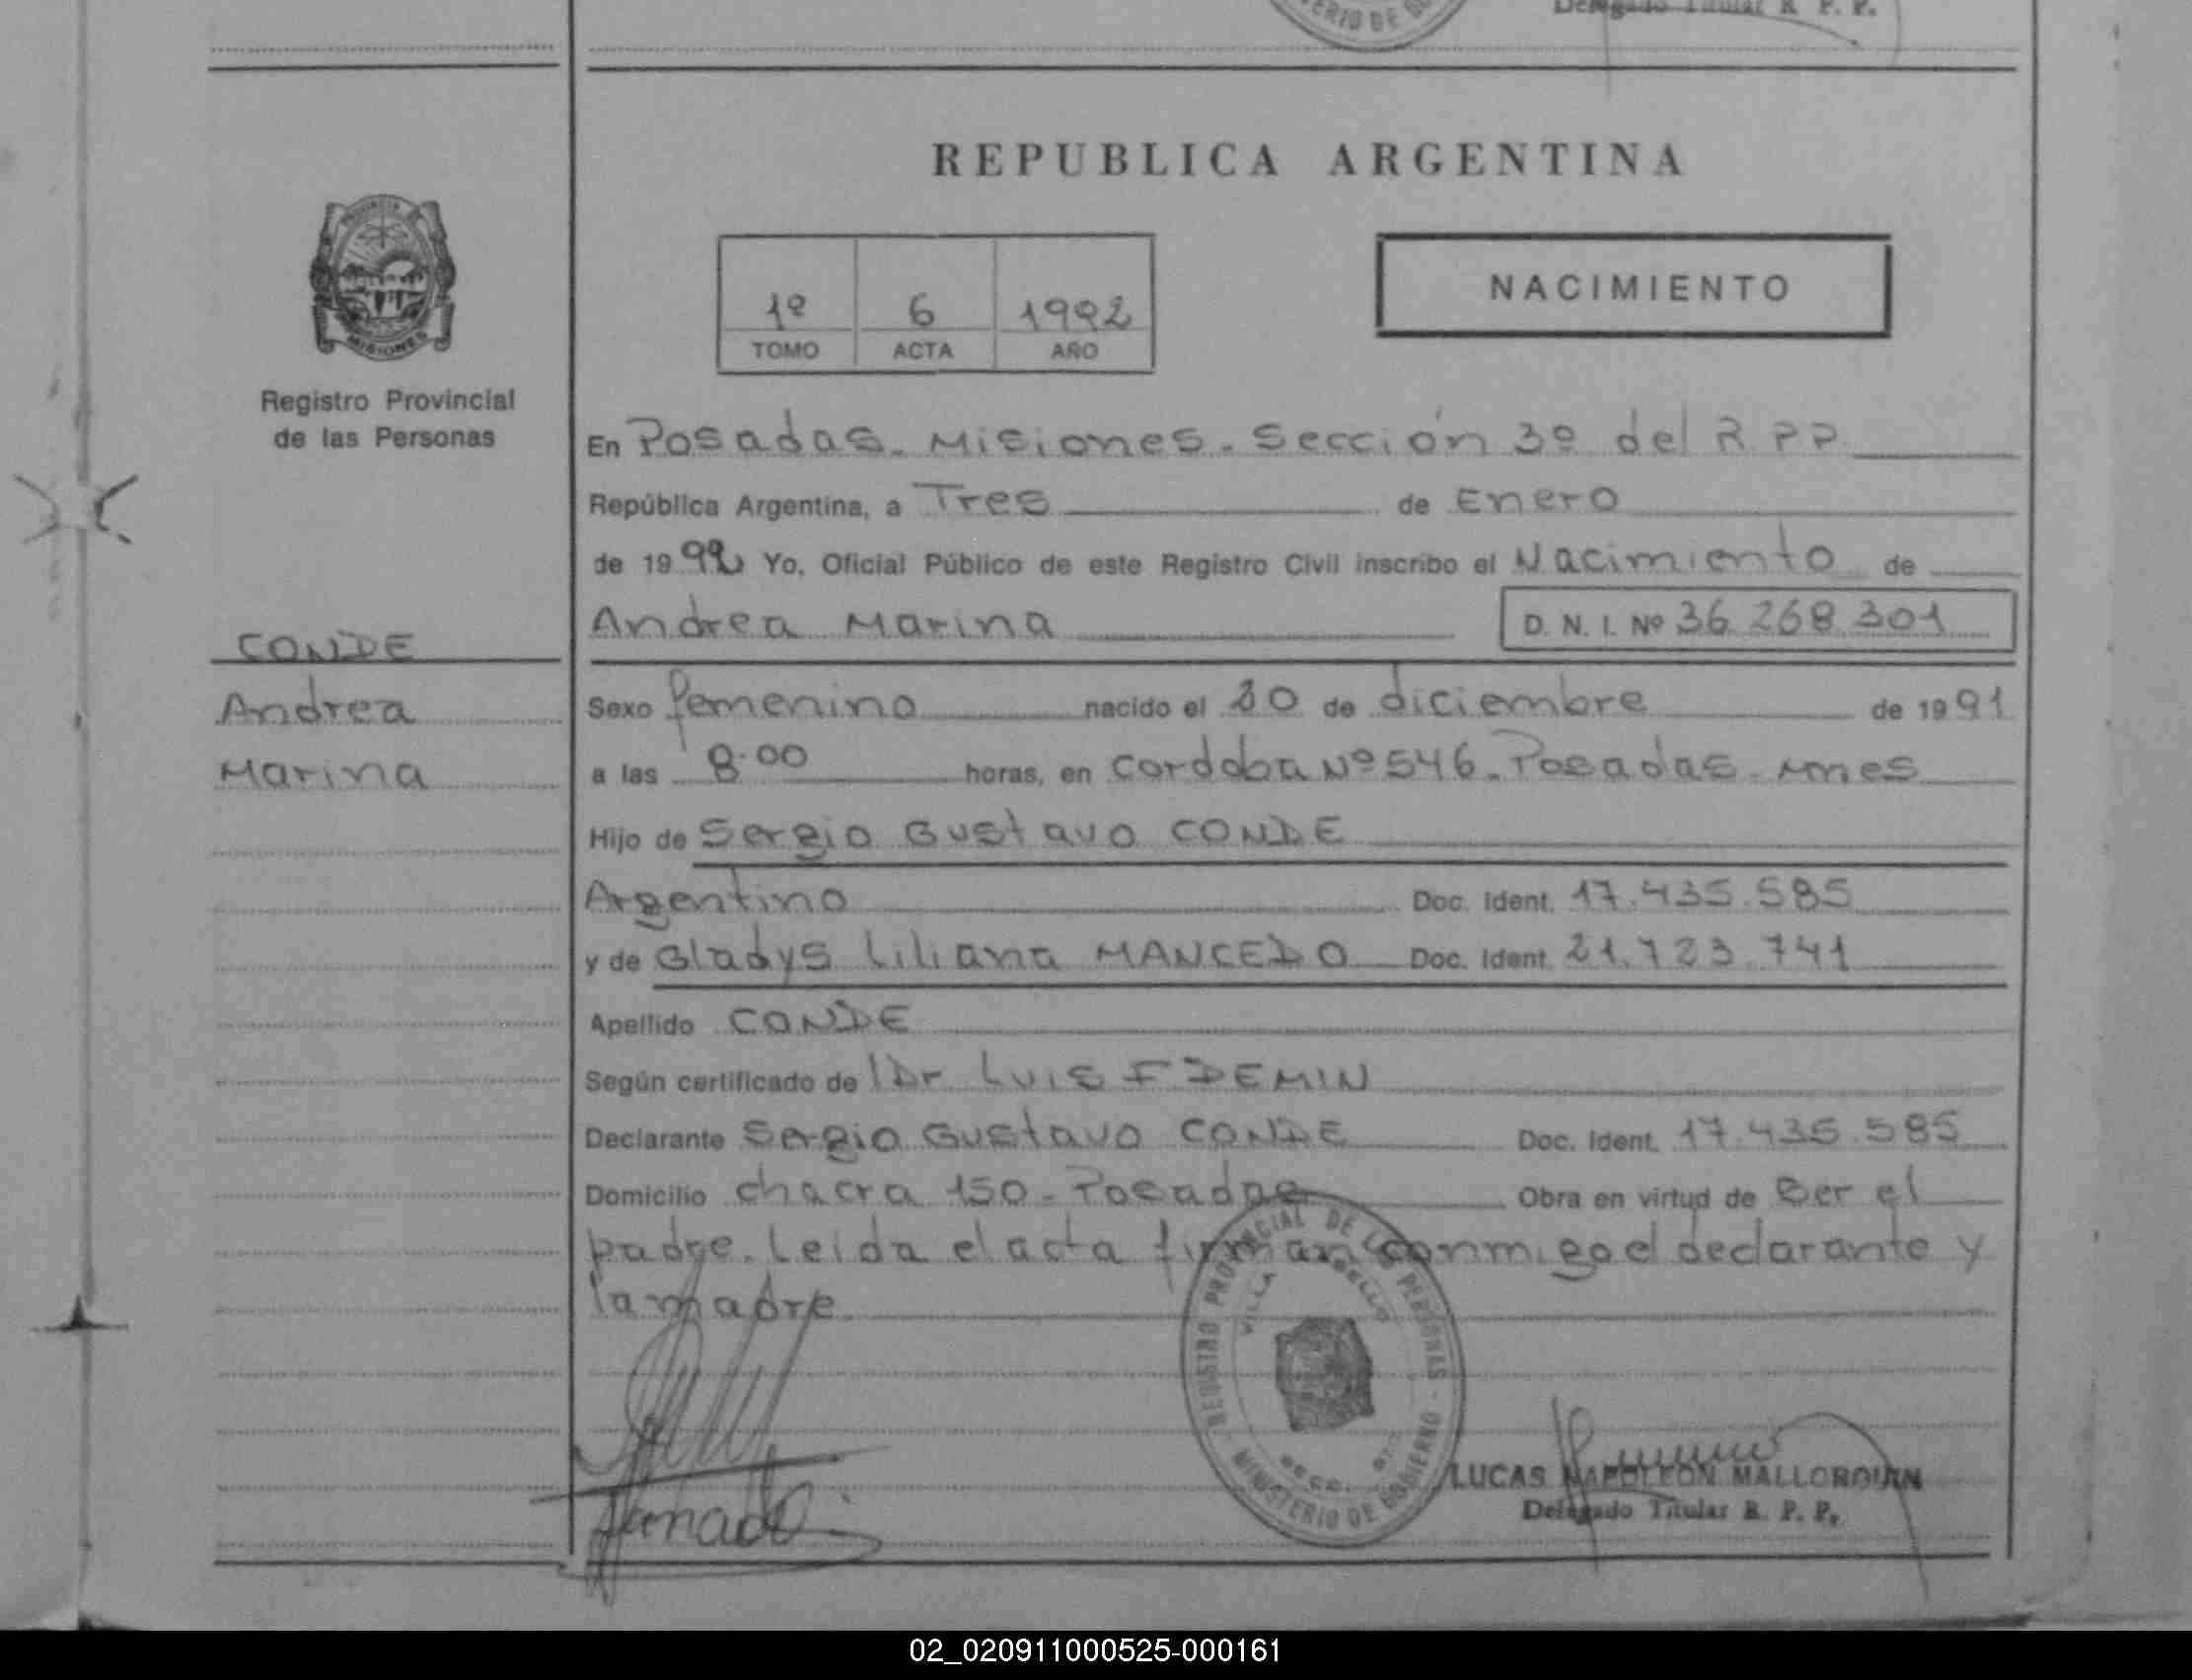 Delegado Titular R. P. P.
REPUBLICA ARGENTINA
NACIMIENTO
1º 6 1992
TOMO ACTA AÑO
Registro Provincial
de las Personas
En Posadas. Misiones. Sección 3º del R.P.P.
República Argentina, a Tres de Enero
de 1992 Yo, Oficial Público de este Registro Civil inscribo el Nacimiento de
Andrea Marina D. N. I. Nº 36.268.301
CONDE
Andrea
Marina
Sexo femenino nacido el 20 de diciembre de 1991
a las 8.00 horas, en Cordoba Nº 546. Posadas. Mnes
Hijo de Sergio Gustavo CONDE
Argentino Doc. Ident. 17.435.585
y de Gladys Liliana MANCEDO Doc. Ident. 21.723.741
Apellido CONDE
Según certificado de Dr LUIS F DEMIN
Declarante Sergio Gustavo CONDE Doc. Ident. 17.435.585
Domicilio chacra 150 - Posadas Obra en virtud de ser el
padre. Leida el acta firman conmigo el declarante y
la madre
REGISTRO PROVINCIAL DE LAS PERSONAS
MINISTERIO DE GOBIERNO
VILLA
LUCAS NAPOLEON MALLORQUIN
Delegado Titular R. P. P.
02_020911000525-000161